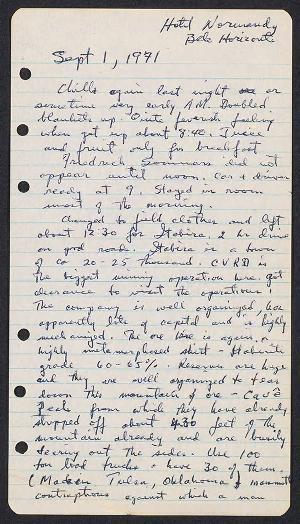 Hotel Normandy
Belo Horizonte
Sept 1, 1971
Chills again last night or
sometime very early A.M. Doubled
blankets up. Quite feverish feeling
when got up about 8:40. Juice
and fruit only for breakfast
Friedrich Sommers did not
appear until noon. Car & driver
ready at 9. Stayed in room
most of the morning.
Changed to field clothes and left
about 12:30 for Itabira, 2 hr drive
on good roads. Itabira is a town
of ca 20-25 thousand. CVRD is
the biggest mining operation here. Got
clearance to visit the operations.
The company is well organized, has
apparently lots of capital and is highly
mechanized. The ore here is again a
highly metamorphosed schist - Itabirite
grade 60-65%. Reserves are huge
and they are well organized to tear
down this mountain of ore - Cauê
Peak from which they have already
stripped off about 430 feet of the
mountain already and are busily
tearing out the sides. Use 100
ton load trucks & have 30 of them.
(Made in Tulsa, Oklahoma) mammoth
contraptions against which a man